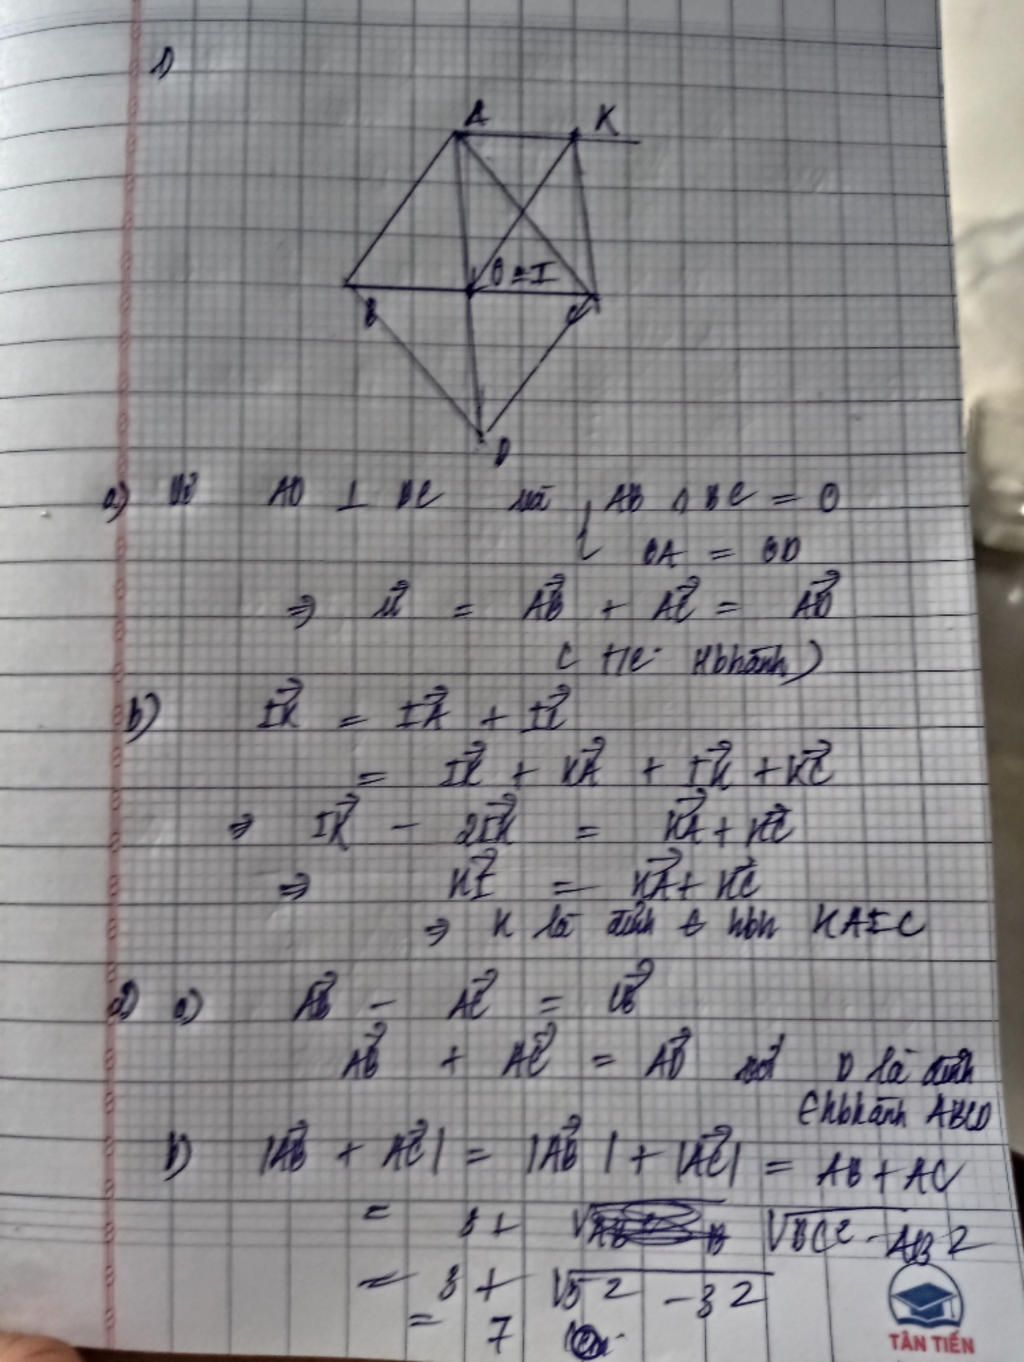 1)
A K
O ≡ I
B C
D
a) Vẽ AD ⊥ BC mà { AB ∩ BC = O
OA = OD
⇒ u⃗ = AB⃗ + AC⃗ = AD⃗
( t/c Hbhành )
b) IK⃗ = IA⃗ + IC⃗
= IK⃗ + KA⃗ + IK⃗ + KC⃗
⇒ IK⃗ - 2IK⃗ = KA⃗ + KC⃗
⇒ KI⃗ = KA⃗ + KC⃗
⇒ K là đỉnh hbh KAIC
2) a) AB⃗ - AC⃗ = CB⃗
AB⃗ + AC⃗ = AD⃗ với D là đỉnh
hbhành ABCD
b) |AB⃗ + AC⃗| = |AB⃗| + |AC⃗| = AB + AC
= 3 + √BC² - AB²
= 3 + √5² - 3²
= 7
TÂN TIẾN